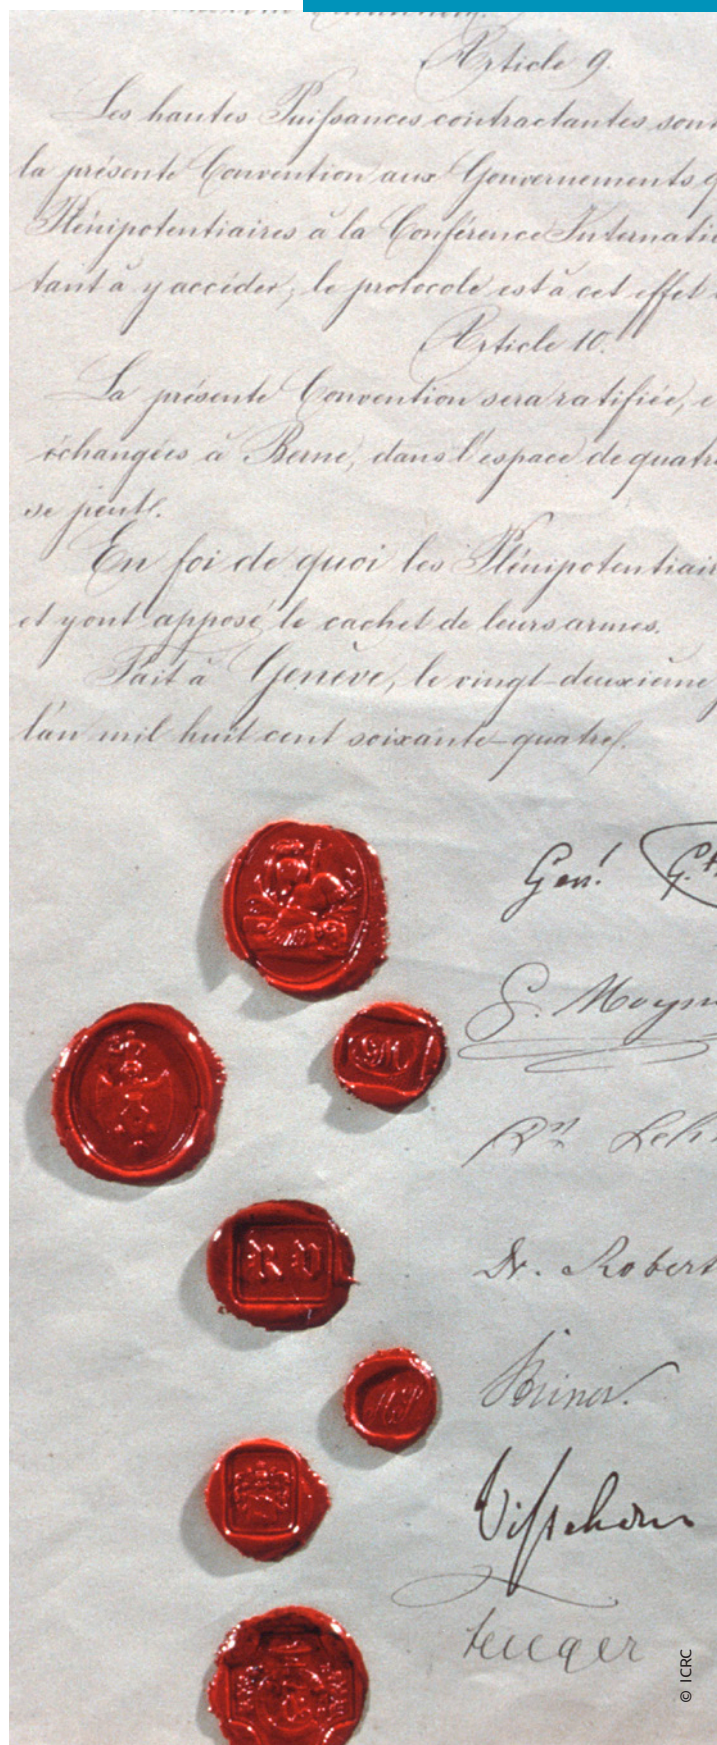 Article 9.
Les hautes Puissances contractantes sont
la présente Convention aux Gouvernements q
Plénipotentiaires à la Conférence Internatio
tant à y accéder; le protocole est à cet effet
Article 10.
La présente Convention sera ratifiée, e
échangées à Berne, dans l'espace de quatre
se peut.
En foi de quoi les Plénipotentiair
et y ont apposé le cachet de leurs armes.
Fait à Genève, le vingt-deuxième
l'an mil huit cent soixante-quatre.
Genl G.
G. Moyn
Dr. Robert
Briner.
Visschers
R V
© ICRC